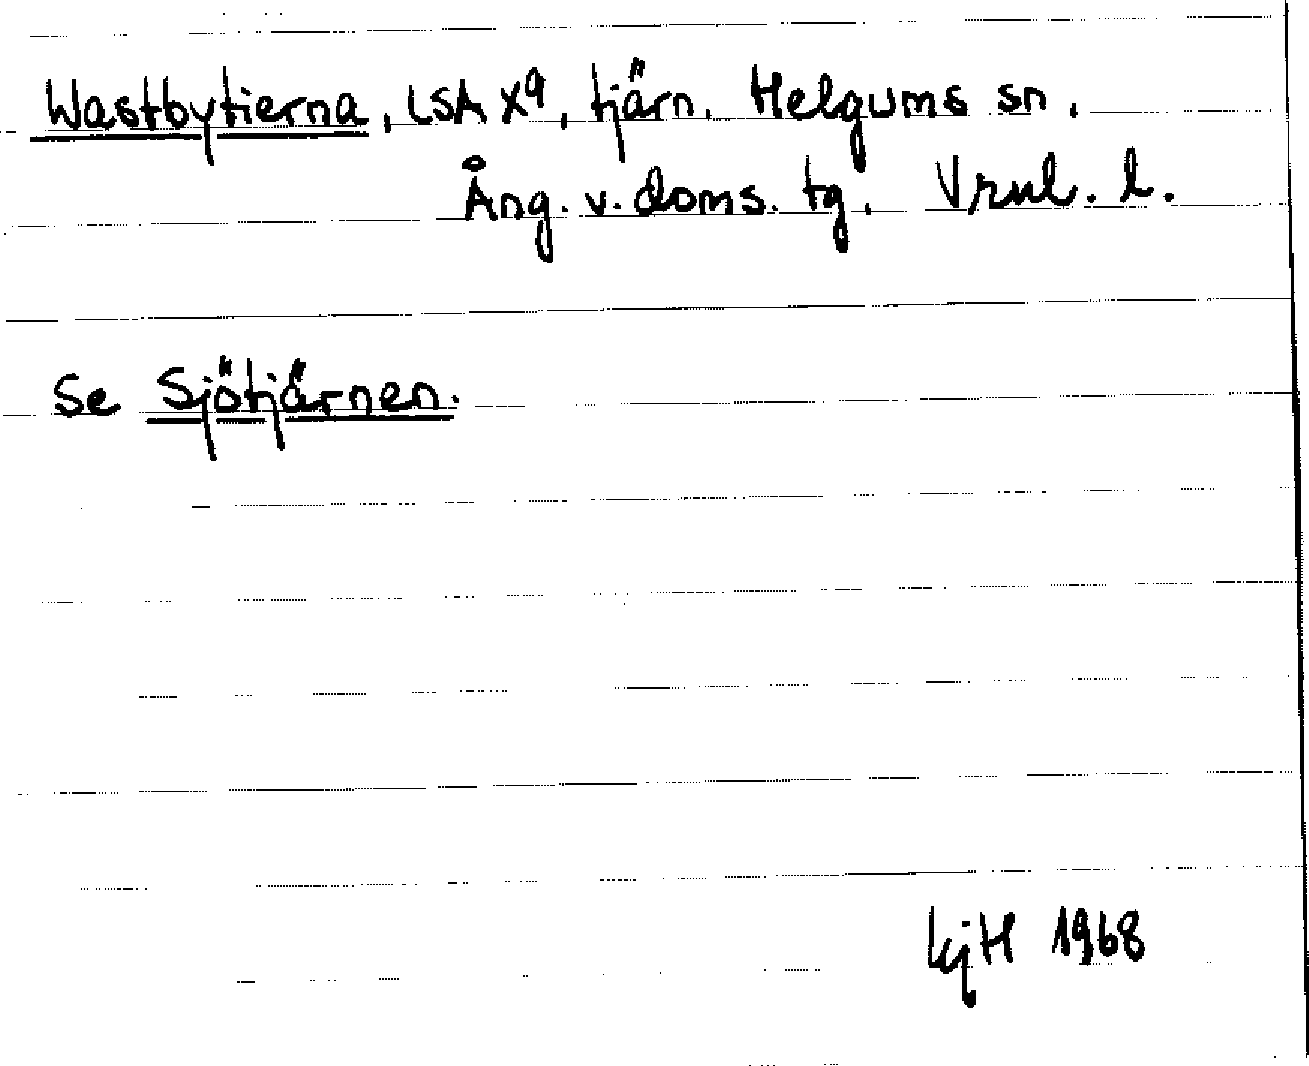 Wastbytierna, LSA X9, tjärn. Helgums sn.
Ång. v. doms. tg. Vrnl. l.
Se Sjötjärnen.
kjH 1968